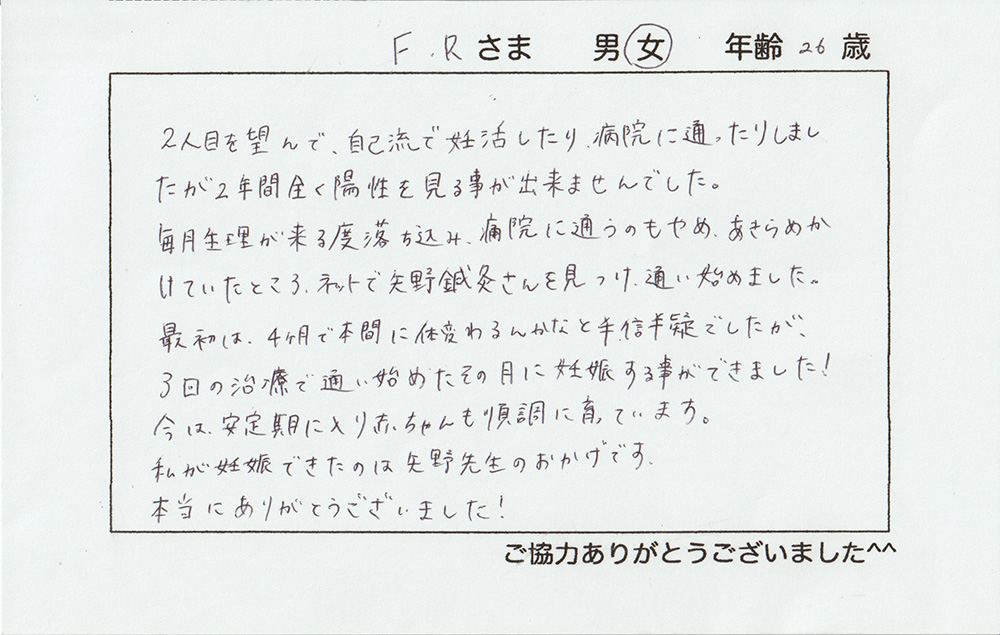 F.Rさま 男 女 年齢 26 歳
2人目を望んで、自己流で妊活したり、病院に通ったりしまし
たが2年間全く陽性を見る事が出来ませんでした。
毎月生理が来る度落ち込み、病院に通うのもやめ、あきらめか
けていたところ、ネットで矢野鍼灸さんを見つけ、通い始めました。
最初は、4ヶ月で本間に体変わるんかなと半信半疑でしたが、
3回の治療で通い始めたその月に妊娠する事ができました!
今は、安定期に入り赤ちゃんも順調に育っています。
私が妊娠できたのは矢野先生のおかげです。
本当にありがとうございました!
ご協力ありがとうございました^^